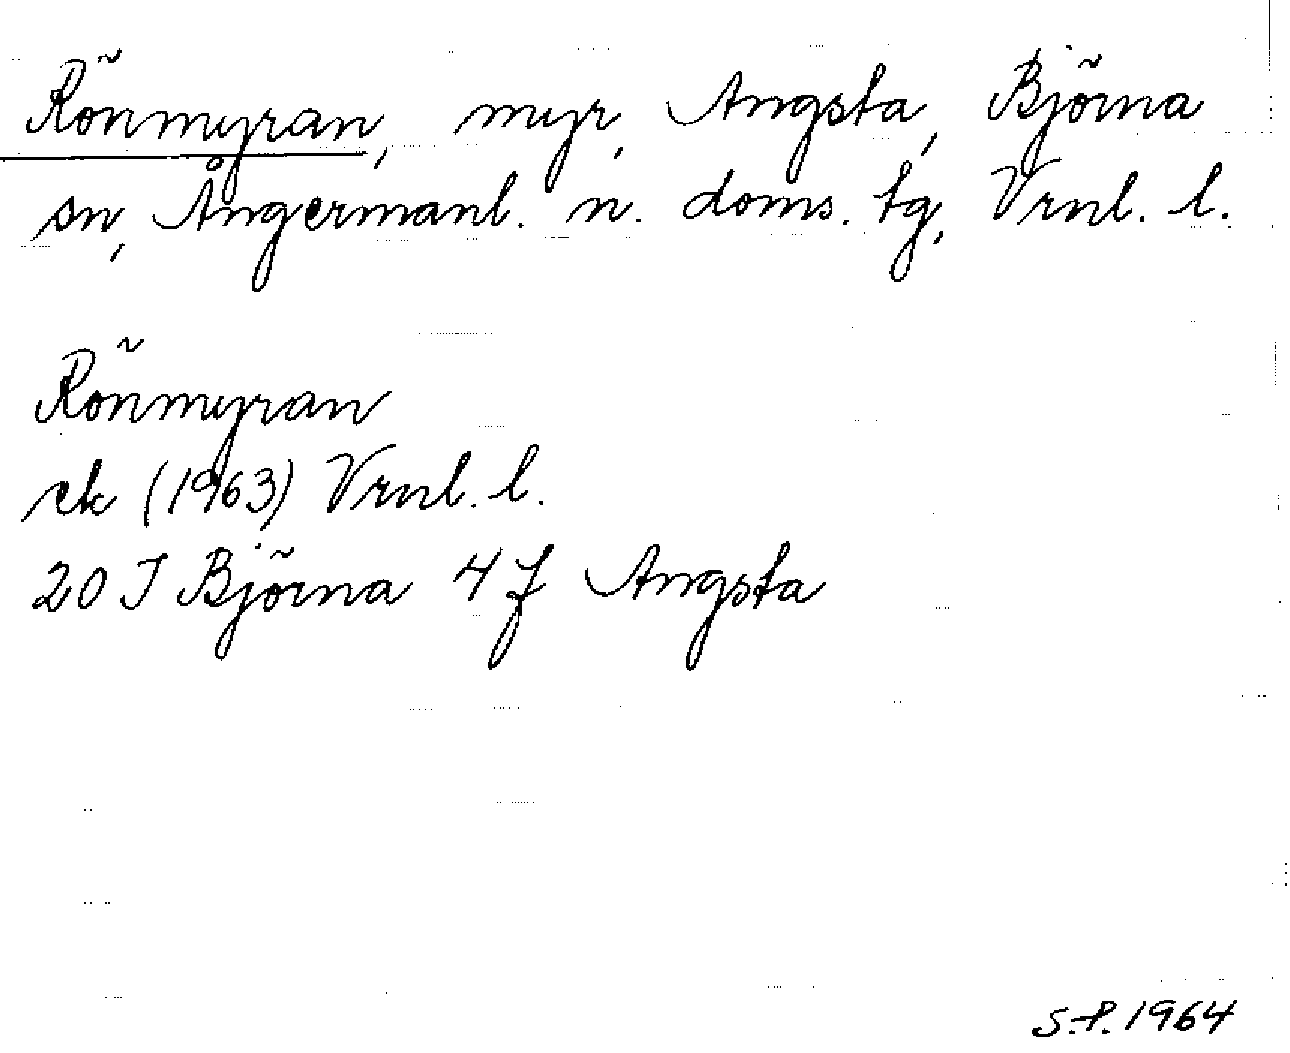 Rönmyran, myr, Angsta, Björna
sn, Ångermanl. n. doms. tg, Vrnl. l.
Rönmyran
ek (1963) Vrnl. l.
20 J Björna 4 f Angsta
S.P. 1964